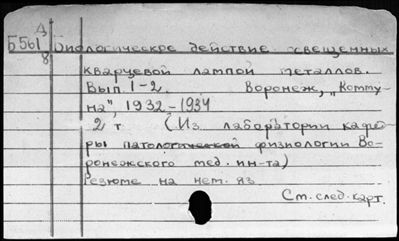 Д
Б561 Биологическое действие освещенных
8
кварцевой лампой металлов.
Вып. 1-2. Воронеж, „Комму
на", 1932-1934
2 т (Из лаборатории кафед
ры патологической физиологии Во-
ронежского мед. ин-та)
Резюме на нем. яз
См. след. карт.